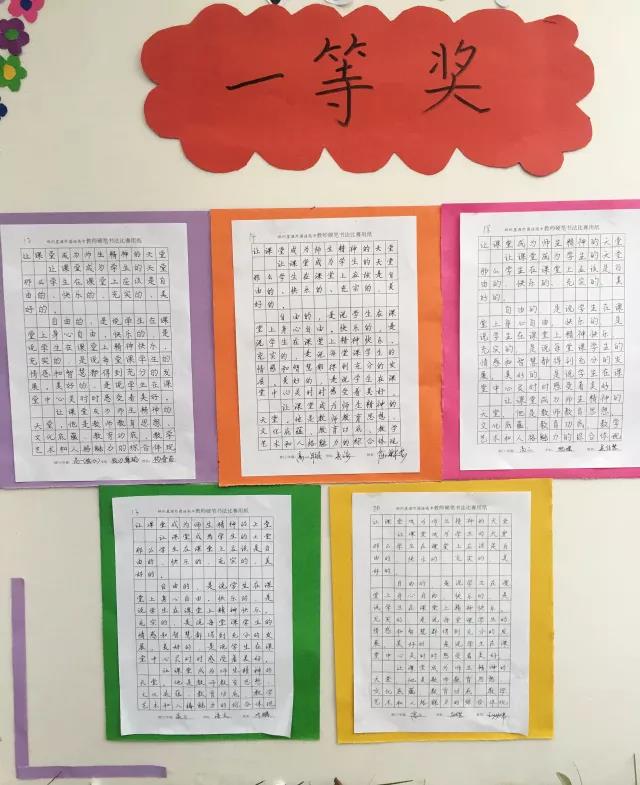 一等奖
教师硬笔书法比赛用纸
让课堂成为师生精神的天堂
让课堂成为学生的天堂
那么学生在课堂上应该是自
由的、快乐的、充实的、美
好的。
自由的,是说学生在课
堂上身心自由,快乐的,是
说学生在课堂上精神快乐,
充实的,是说每堂课学生的
情感和智慧都得到充分的发
展,美好的,是说学生在课
堂中心灵时时感受着美好。
让课堂成为师生精神的
天堂,他是教师教育思想、
文化底蕴、教育功底、教学
艺术和人格魅力的综合体现
教师硬笔书法比赛用纸
让课堂成为师生精神的天堂
让课堂成为学生的天堂
那么学生在课堂上应该是自
由的、快乐的、充实的、美
好的。
自由的,是说学生在课
堂上身心自由,快乐的,是
说学生在课堂上精神快乐,
充实的,是说每堂课学生的
情感和智慧都得到充分的发
展,美好的,是说学生在课
堂中心灵时时感受着美好。
让课堂成为师生精神的
天堂,他是教师教育思想、
文化底蕴、教育功底、教学
艺术和人格魅力的综合体现
18
教师硬笔书法比赛用纸
让课堂成为师生精神的天堂
让课堂成为学生的天堂
那么学生在课堂上应该是自
由的、快乐的、充实的、美
好的。
自由的,是说学生在课
堂上身心自由,快乐的,是
说学生在课堂上精神快乐,
充实的,是说每堂课学生的
情感和智慧都得到充分的发
展,美好的,是说学生在课
堂中心灵时时感受着美好。
让课堂成为师生精神的
天堂,他是教师教育思想、
文化底蕴、教育功底、教学
艺术和人格魅力的综合体现
教师硬笔书法比赛用纸
让课堂成为师生精神的天堂
让课堂成为学生的天堂
那么学生在课堂上应该是自
由的、快乐的、充实的、美
好的。
自由的,是说学生在课
堂上身心自由,快乐的,是
说学生在课堂上精神快乐,
充实的,是说每堂课学生的
情感和智慧都得到充分的发
展,美好的,是说学生在课
堂中心灵时时感受着美好。
让课堂成为师生精神的
天堂,他是教师教育思想、
文化底蕴、教育功底、教学
艺术和人格魅力的综合体现
20
教师硬笔书法比赛用纸
让课堂成为师生精神的天堂
让课堂成为学生的天堂
那么学生在课堂上应该是自
由的、快乐的、充实的、美
好的。
自由的,是说学生在课
堂上身心自由,快乐的,是
说学生在课堂上精神快乐,
充实的,是说每堂课学生的
情感和智慧都得到充分的发
展,美好的,是说学生在课
堂中心灵时时感受着美好。
让课堂成为师生精神的
天堂,他是教师教育思想、
文化底蕴、教育功底、教学
艺术和人格魅力的综合体现